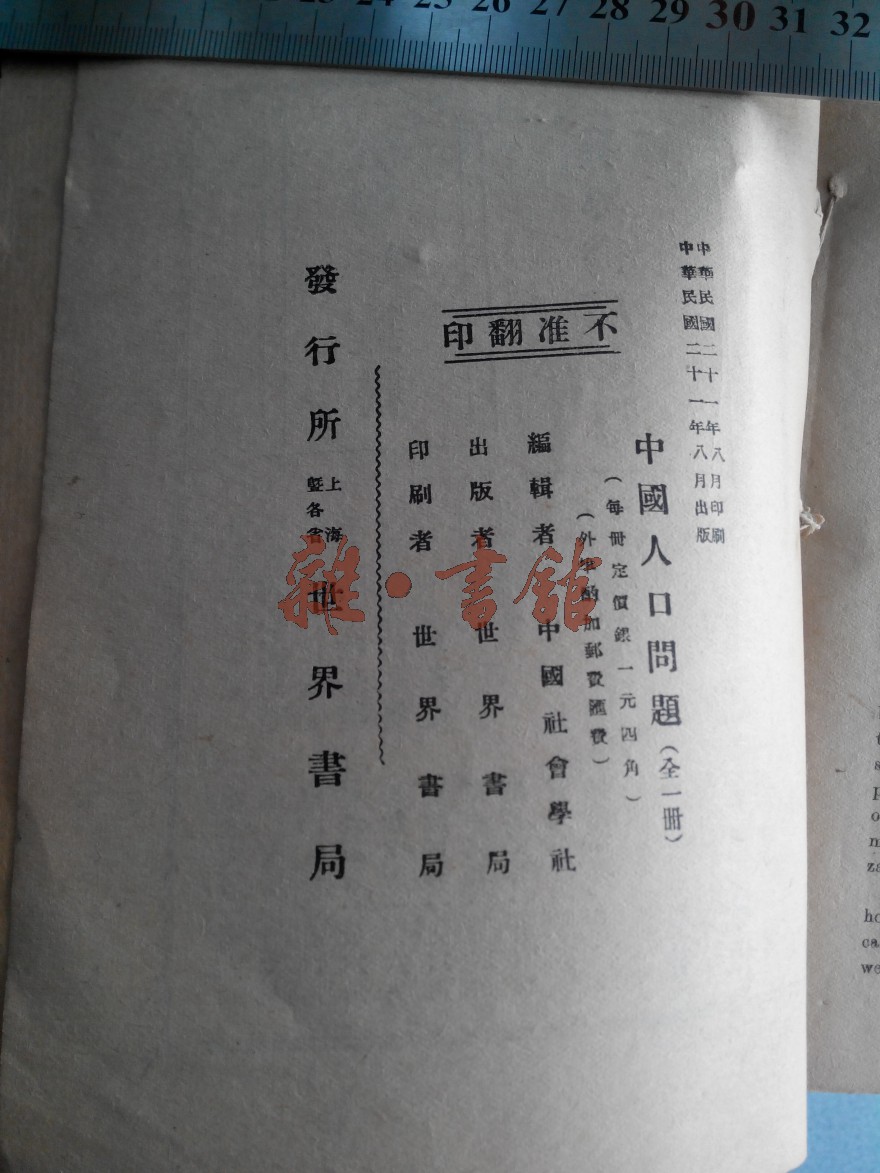 中華民國二十一年八月印刷
中華民國二十一年八月出版
中國人口問題（全一冊）
（每冊定價銀一元四角）
（外埠酌加郵費匯費）
不准翻印
編輯者 中國社會學社
出版者 世界書局
印刷者 世界書局
發行所 上海暨各省 世界書局
雜·書館
24 25 26 27 28 29 30 31 32
ho
ca
we